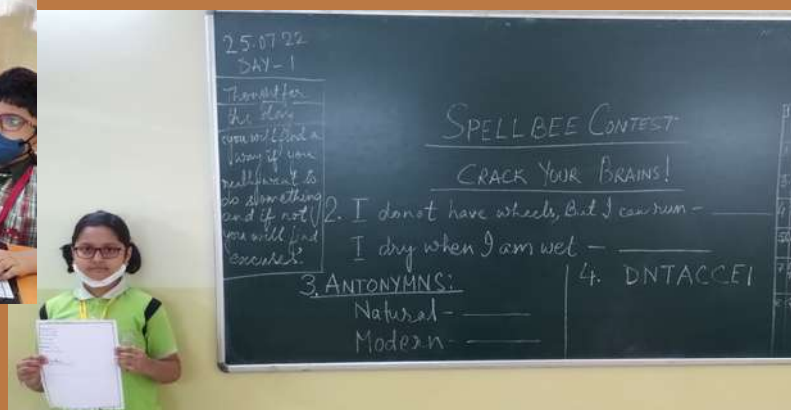 25.07.22
DAY-1
Thought for
the day
you will find a
way if you
really want to
do something
and if not
you will find
excuses.
SPELLBEE CONTEST
CRACK YOUR BRAINS!
2. I donot have wheels, But I can run - ______
I dry when I am wet - ______
3. ANTONYMNS:
Natural - ______
Modern - ______
4. DNTACCEI